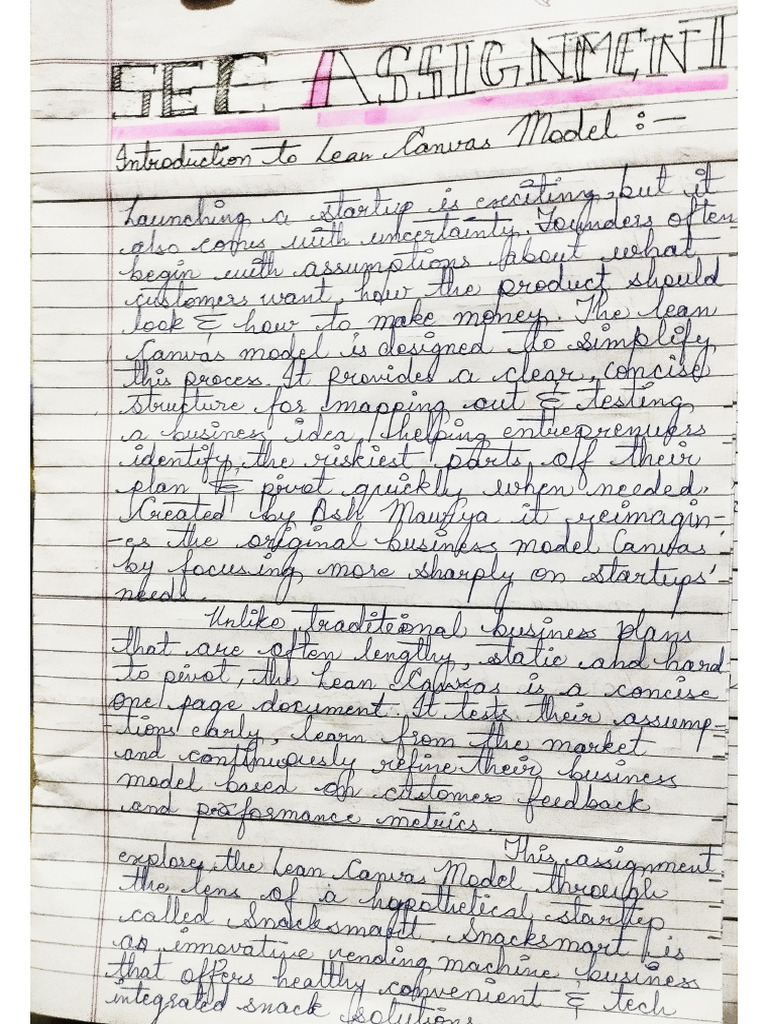 SEC ASSIGNMENT
Introduction to Lean Canvas Model :-
Launching a startup is exciting, but it
also comes with uncertainty. Founders often
begin with assumptions about what
customers want, how the product should
look & how to make money. The lean
Canvas model is designed to simplify
this process. It provides a clear, concise
structure for mapping out & testing
a business idea, helping entreprenuers
identify the riskiest parts of their
plan & pivot quickly when needed.
Created by Ash Maurya it reimagin-
-es the original business model Canvas
by focusing more sharply on startups'
needs.
Unlike traditional business plans
that are often lengthy, static and hard
to pivot, the Lean Canvas is a concise
one page document. It tests their assump-
-tions early, learn from the market
and continuously refine their business
model based on customer feedback
and performance metrics.
This assignment
explores the Lean Canvas Model through
the lens of a hypothetical startup
called Snacksmart. Snacksmart is
an innovative vending machine business
that offers healthy convenient & tech
integrated snack solutions.